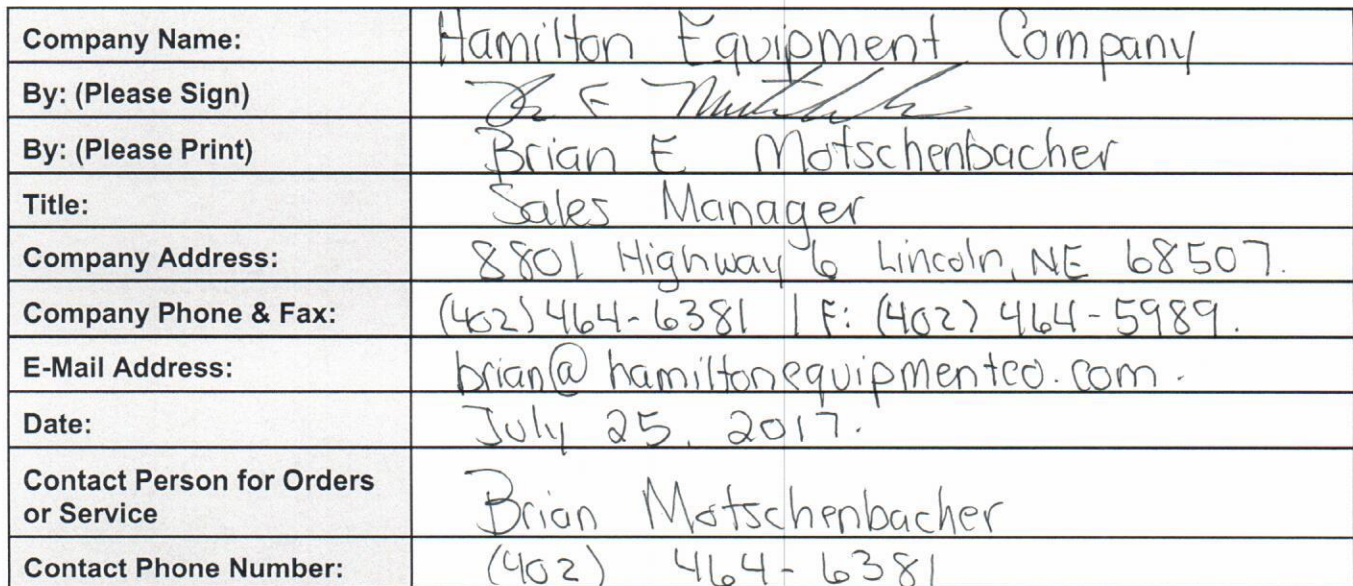 Company Name: Hamilton Equipment Company
By: (Please Sign)
By: (Please Print) Brian E Motschenbacher
Title: Sales Manager
Company Address: 8801 Highway 6 Lincoln, NE 68507.
Company Phone & Fax: (402) 464-6381 | F: (402) 464-5989.
E-Mail Address: brian@hamiltonequipmentco.com.
Date: July 25, 2017.
Contact Person for Orders
or Service Brian Motschenbacher
Contact Phone Number: (402) 464-6381